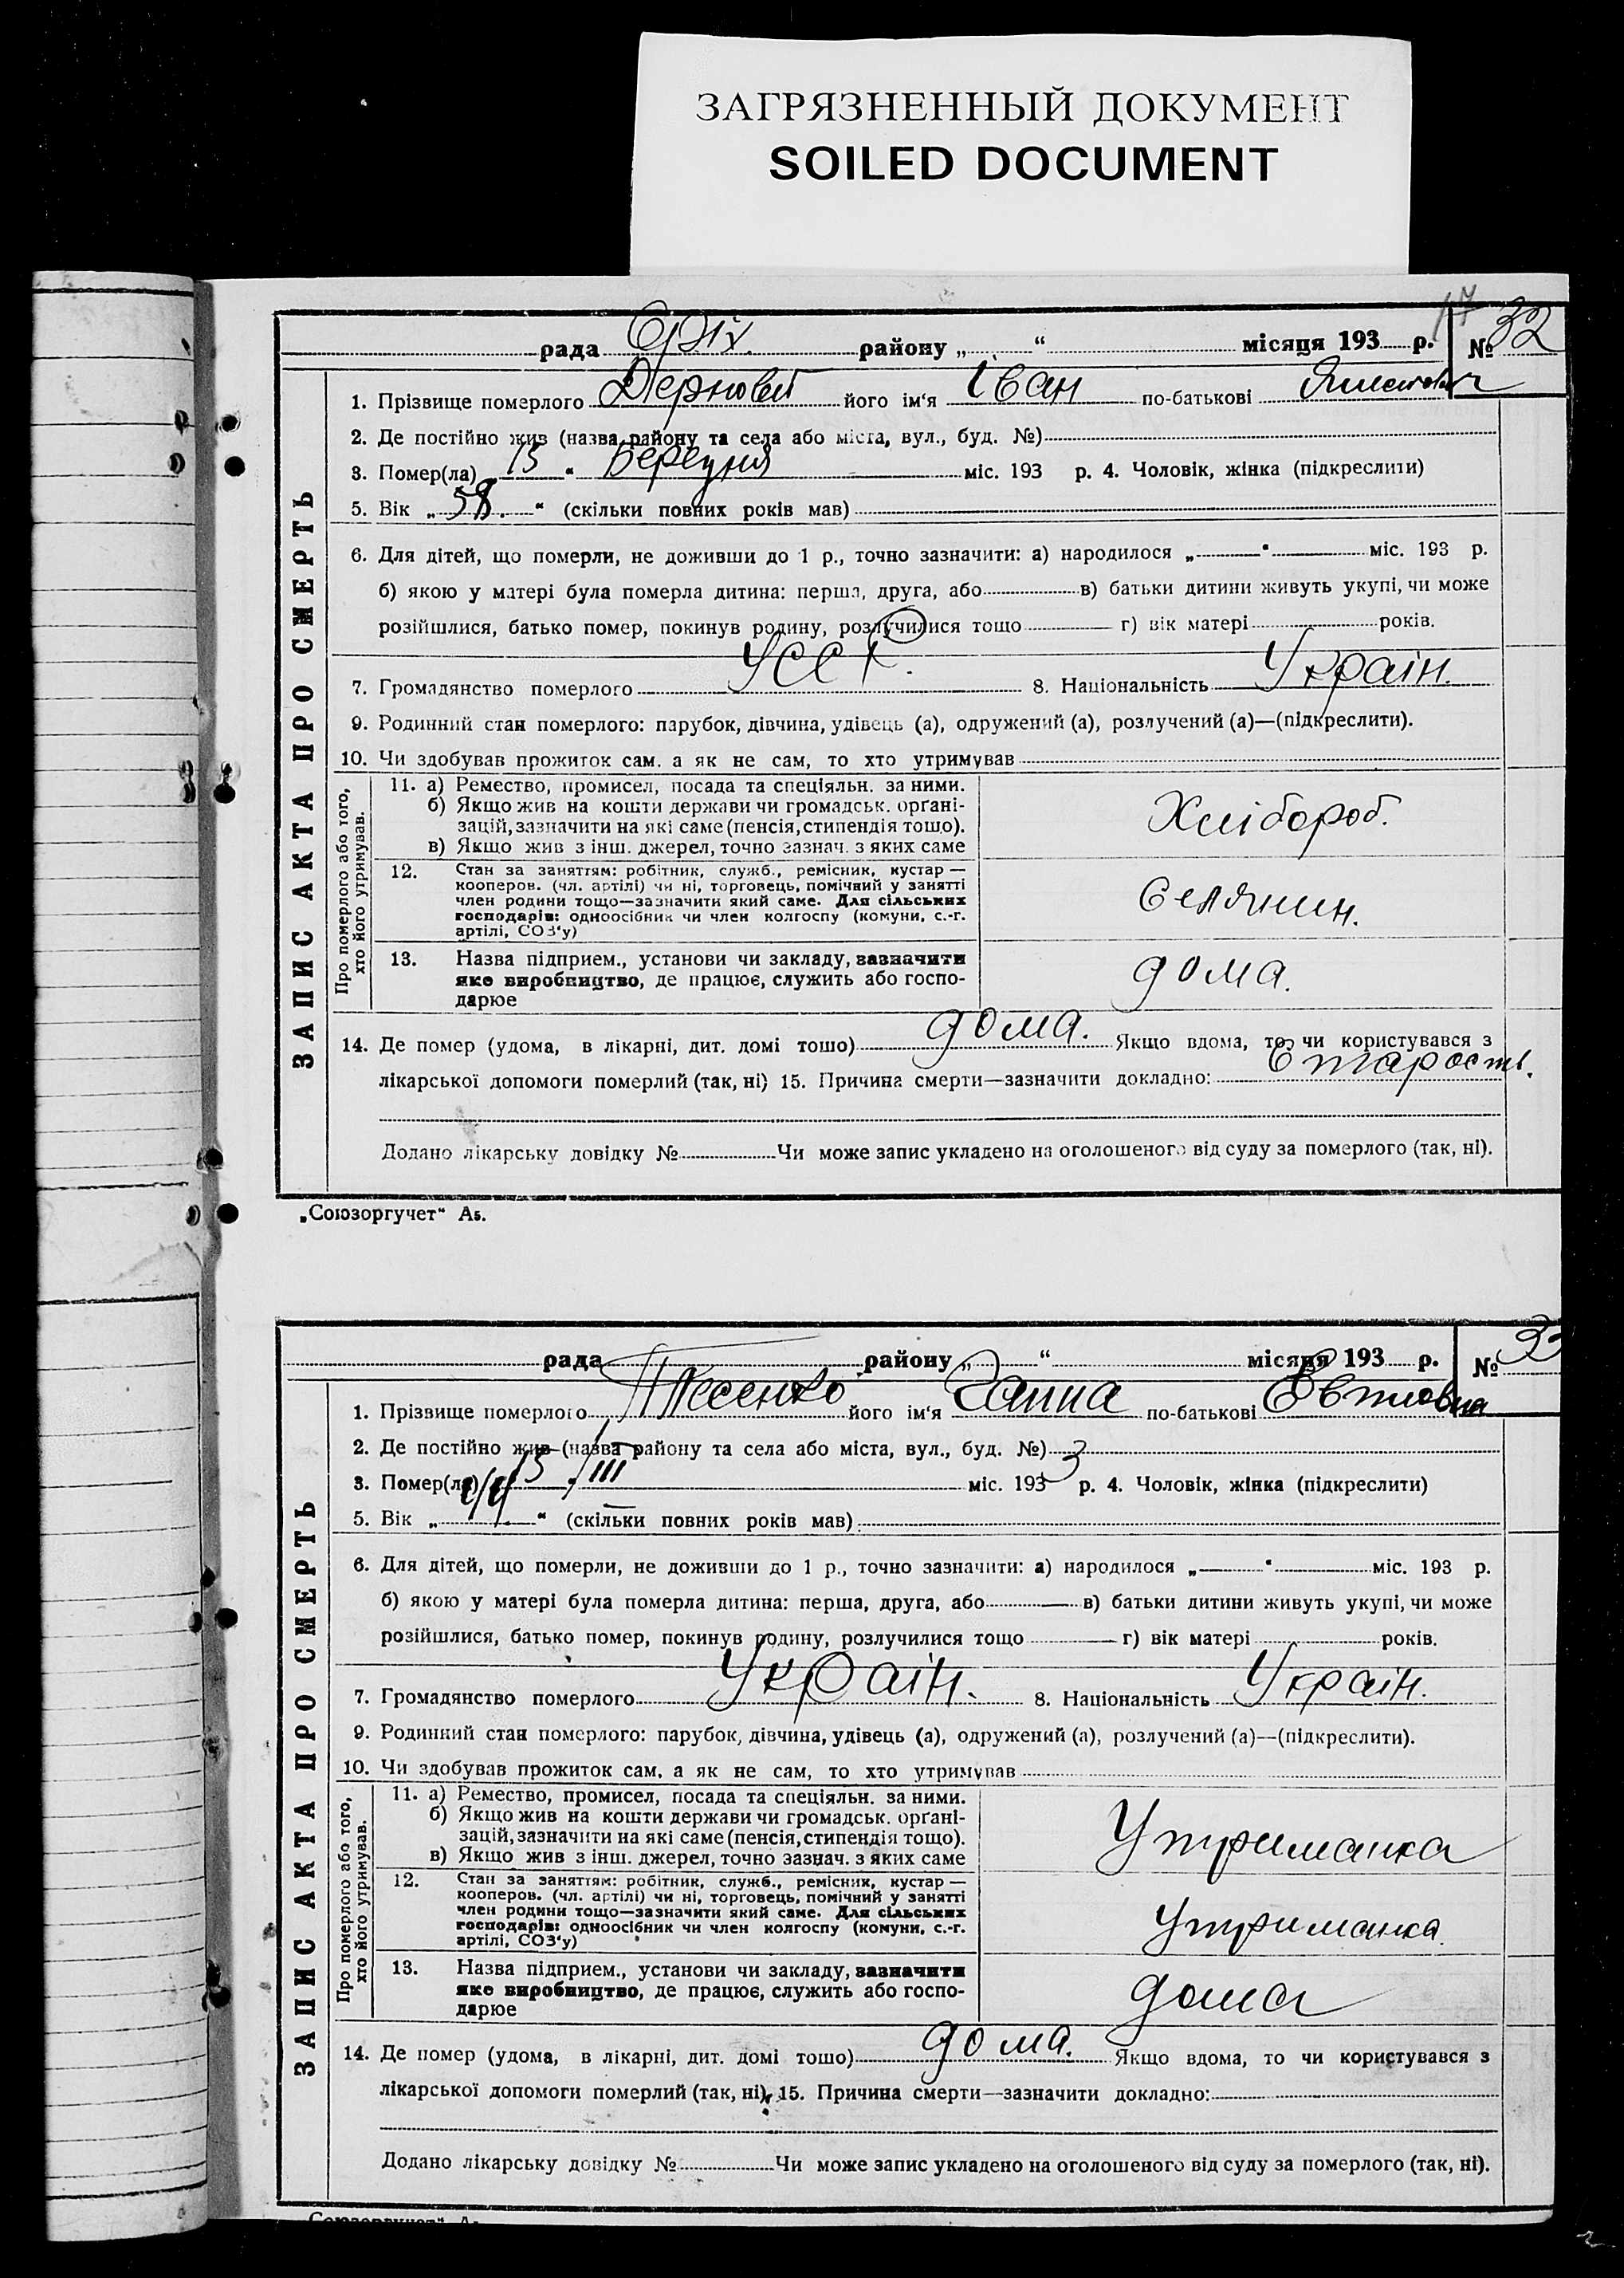 ЗАГРЯЗНЕННЫЙ ДОКУМЕНТ
SOILED DOCUMENT
17
рада Оріх. району „ “ місяця 193 р. № 32
ЗАПИС АКТА ПРО СМЕРТЬ
1. Прізвище померлого Дерновой його ім'я Іван по-батькові
2. Де постійно жив (назва району та села або міста, вул., буд. №)
3. Помер(ла) 15 “ Березня міс. 193 р. 4. Чоловік, жінка (підкреслити)
5. Вік „ 58. “ (скільки повних років мав)
6. Для дітей, що померли, не доживши до 1 р., точно зазначити: а) народилося „ “ міс. 193 р.
б) якою у матері була померла дитина: перша, друга, або в) батьки дитини живуть укупі, чи може
розійшлися, батько помер, покинув родину, розлучилися тощо г) вік матері років.
7. Громадянство померлого УССР. 8. Національність Україн.
9. Родинний стан померлого: парубок, дівчина, удівець (а), одружений (а), розлучений (а)—(підкреслити).
10. Чи здобував прожиток сам, а як не сам, то хто утримував
Про померлого або того, хто його утримував.
11. а) Ремество, промисел, посада та спеціяльн. за ними.
б) Якщо жив на кошти держави чи громадськ. орґані-
зацій, зазначити на які саме (пенсія, стипендія тощо).
в) Якщо жив з інш. джерел, точно зазнач. з яких саме
Хлібороб.
12. Стан за заняттям: робітник, служб., ремісник, кустар —
кооперов. (чл. артілі) чи ні, торговець, помічний у занятті
член родини тощо—зазначити який саме. Для сільських
господарів: одноосібник чи член колгоспу (комуни, с.-г.
артілі, СОЗ'у)
Селянин.
13. Назва підприєм., установи чи закладу, зазначити
яке виробництво, де працює, служить або госпо-
дарює
дома.
14. Де помер (удома, в лікарні, дит. домі тошо) дома. Якщо вдома, то чи користувався з
лікарської допомоги померлий (так, ні) 15. Причина смерти—зазначити докладно: Старость.
Додано лікарську довідку № Чи може запис укладено на оголошеного від суду за померлого (так, ні).
„Союзоргучет“ А5.
рада району „ “ місяця 193 р. № 33
ЗАПИС АКТА ПРО СМЕРТЬ
1. Прізвище померлого його ім'я Ганна по-батькові
2. Де постійно жив (назва району та села або міста, вул., буд. №)
3. Помер(ла) 15 “ III міс. 1933 р. 4. Чоловік, жінка (підкреслити)
5. Вік „ “ (скільки повних років мав)
6. Для дітей, що померли, не доживши до 1 р., точно зазначити: а) народилося „ “ міс. 193 р.
б) якою у матері була померла дитина: перша, друга, або в) батьки дитини живуть укупі, чи може
розійшлися, батько помер, покинув родину, розлучилися тощо г) вік матері років.
7. Громадянство померлого Україн. 8. Національність Україн.
9. Родинний стан померлого: парубок, дівчина, удівець (а), одружений (а), розлучений (а)—(підкреслити).
10. Чи здобував прожиток сам, а як не сам, то хто утримував
Про померлого або того, хто його утримував.
11. а) Ремество, промисел, посада та спеціяльн. за ними.
б) Якщо жив на кошти держави чи громадськ. орґані-
зацій, зазначити на які саме (пенсія, стипендія тощо).
в) Якщо жив з інш. джерел, точно зазнач. з яких саме
Утриманка
12. Стан за заняттям: робітник, служб., ремісник, кустар —
кооперов. (чл. артілі) чи ні, торговець, помічний у занятті
член родини тощо—зазначити який саме. Для сільських
господарів: одноосібник чи член колгоспу (комуни, с.-г.
артілі, СОЗ'у)
Утриманка.
13. Назва підприєм., установи чи закладу, зазначити
яке виробництво, де працює, служить або госпо-
дарює
дома
14. Де помер (удома, в лікарні, дит. домі тошо) дома. Якщо вдома, то чи користувався з
лікарської допомоги померлий (так, ні), 15. Причина смерти—зазначити докладно:
Додано лікарську довідку № Чи може запис укладено на оголошеного від суду за померлого (так, ні).